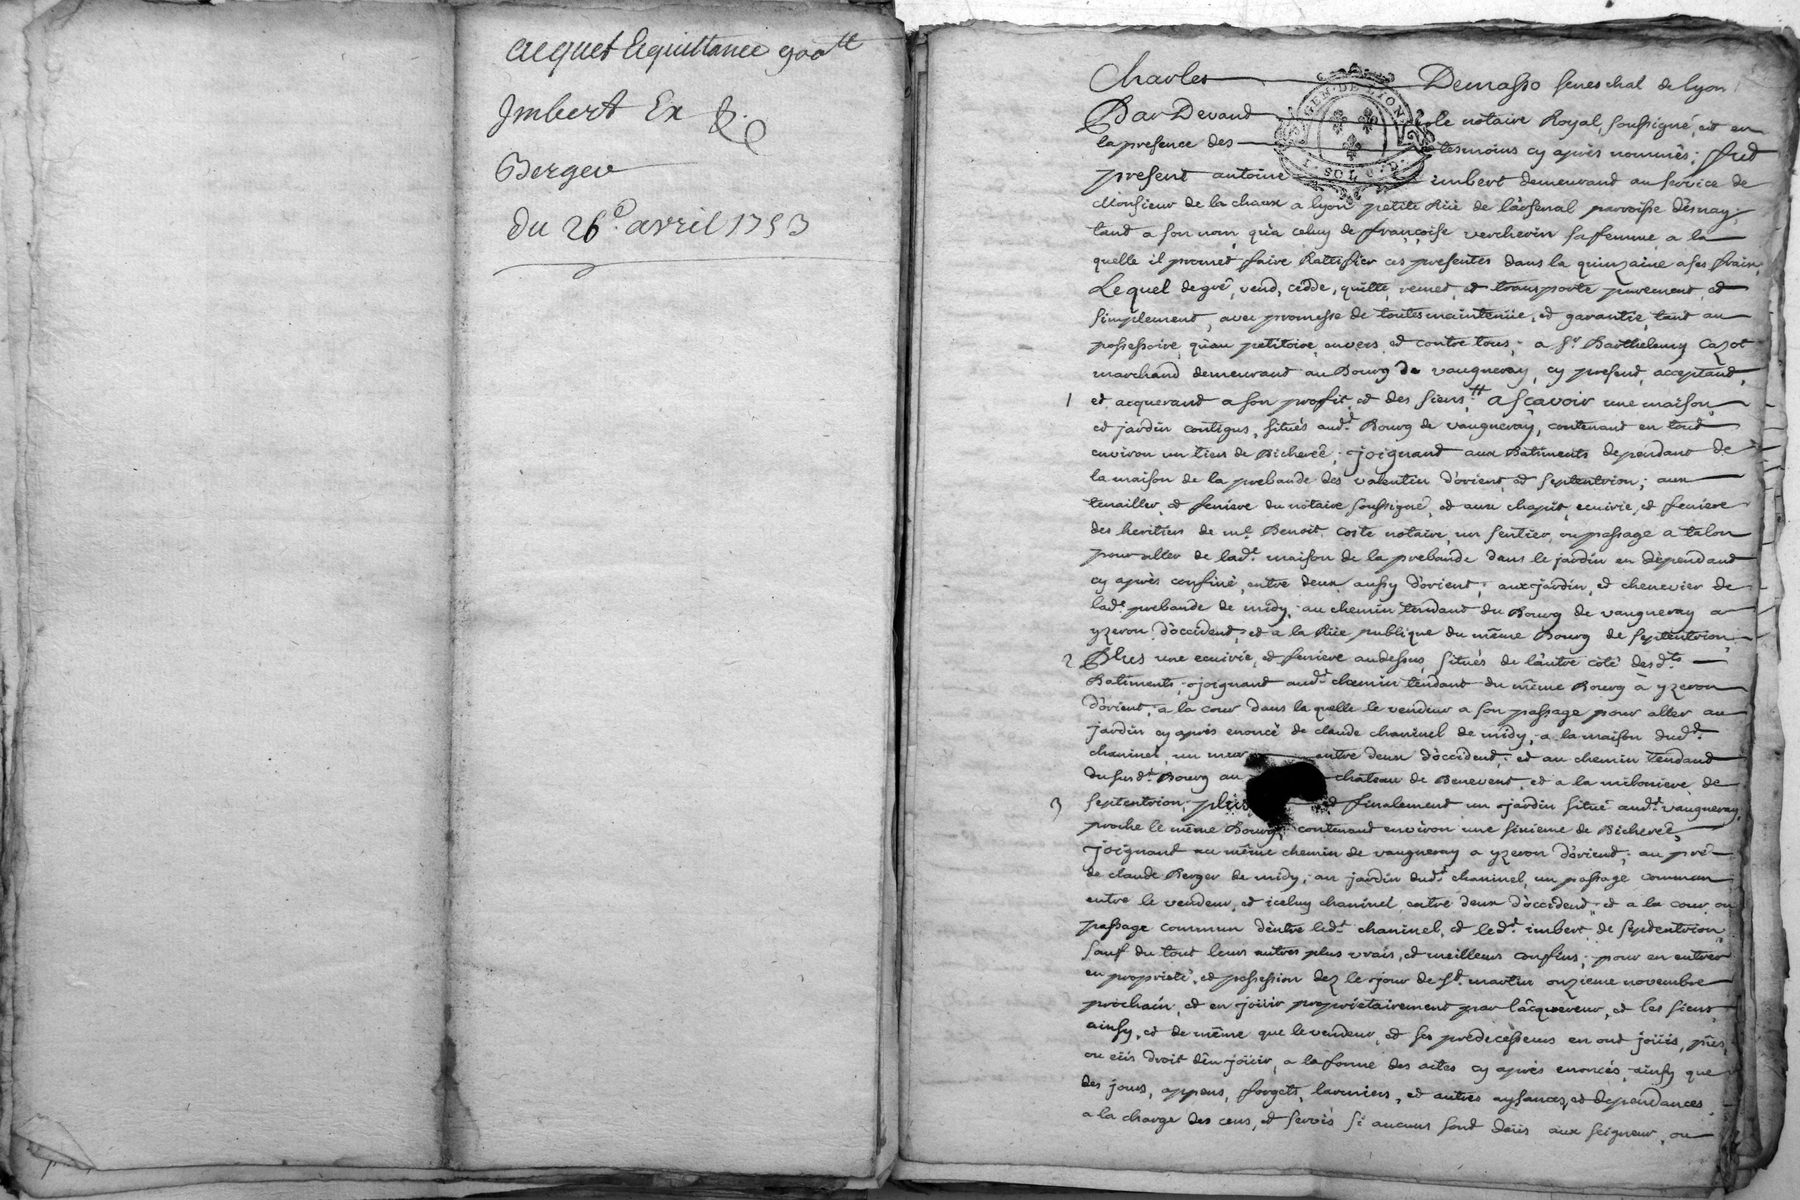 acquet & quittance 900tt
Imbert Ex &.
Berger
du 26e. avril 1753
Charles Demasso seneschal de lyon
Par Devand le notaire Royal, soussigné, et en
la presence des tesmoins cy apres nommés; fut
present antoine imbert demeurand au service de
Monsieur de la chaux a lyon petite Rüe de l'arsenal parroisse d'esnay;
tand a son nom, qu'a celuy de françoise vercherin sa femme, a la
quelle il promet faire Rattiffier ces presentes dans la quinzaine a ses frais,
Lequel de gré, vend, cedde, quitte, remet, et transporte purement, et
simplement, avec promesse de toutes maintenüe, et garantie, tant au
possessoire, qu'au petitoire, envers, et contre tous; a sr. Barthelemy Cazot
marchand demeurant au Bourg de vaugneray, cy present, acceptand,
1 et acquerand a son profit, et des siens; tt asçavoir une maison,
et jardin contigus, situés aud.t Bourg de vaugneray, contenant en tout
environ un tiers de Bicherée; joignand aux Batiments dependant de
la maison de la prebande des valentin d'orient, et septentrion; aux
tenailler, et feniere du notaire soussigné, et aux chapit, ecuirie, et feniere
des heritiers de me. Benoit Coste notaire, un sentier, ou passage a talon
pour aller de lad.e maison de la prebande dans le jardin en dépendand
cy aprés confiné, entre deux, aussy d'orient; aux jardin, et chenevier de
lad.e prebande de midy; au chemin tendant du Bourg de vaugneray a
yzeron, d'occident; et a la Rüe publique du même Bourg de septentrion;
2 Plus une ecuirie, et feniere au dessus, situés de l'autre côté desd.ts
Batiments, joignant aud.t chemin tendant du même Bourg à yzeron
d'orient; a la cour dans la quelle le vendeur a son passage pour aller au
jardin cy aprés enoncé de claude chaninel de midy; a la maison dud.t
chaninel, un mur entre deux d'occident; et au chemin tendand
du susd.t Bourg au château de Benevent, et a la milonniere, de
3 septentrion; plus et finalement un jardin situé aud.t vaugneray,
proche le même Bourg, contenand environ une sixieme de Bicherée,
joignand au même chemin de vaugneray a yzeron d'orient; au pré
de claude Berger de midy; au jardin dud.t chaninel, un passage commun
entre le vendeur, et iceluy chaninel, entre deux d'occident; et a la cour, ou
passage commun d'entre led.t chaninel, et led.t imbert, de septentrion,
sauf du tout leurs autres plus vrais, et meilleurs confins; pour en entrer
en proprieté, et possession dez le jour de st. martin onzieme novembre
prochain, et en joüir proprietairement par l'acquereur, et les siens,
ainsy, et de même que le vendeur, et ses prédecesseurs en ont joüis, pûs,
ou eüs droit d'en joüir, a la forme des actes cy aprés enoncés, ainsy que
des jours, appens, forgets, larmiers, et autres aysances, et dependances.
a la charge des cens, et servis si aucuns sont deüs aux seigneur, ou